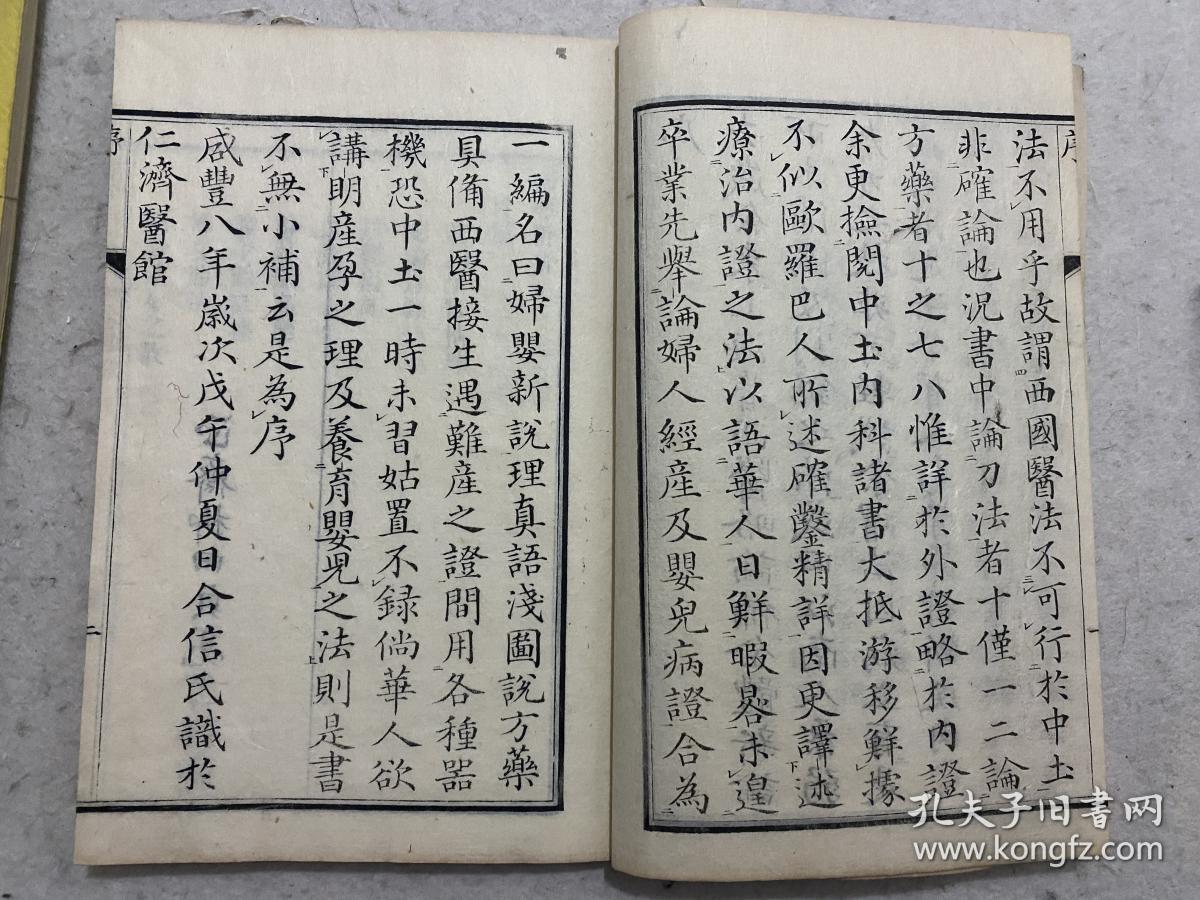 序
法不用乎故謂西國醫法不可行於中土
非確論也況書中論刀法者十僅一二論
方藥者十之七八惟詳於外證略於內證
余更撿閱中土內科諸書大抵游移鮮據
不似歐羅巴人所述確鑿精詳因更譯述
療治內證之法以語華人日鮮暇晷未遑
卒業先舉論婦人經產及嬰兒病證合為
一編名曰婦嬰新說理真語淺圖說方藥
具備西醫接生遇難產之證間用各種器
機恐中土一時未習姑置不録倘華人欲
講明產孕之理及養育嬰兒之法則是書
不無小補云是為序
咸豐八年歲次戊午仲夏日合信氏識於
仁濟醫館
序
二
孔夫子旧书网
www.kongfz.com